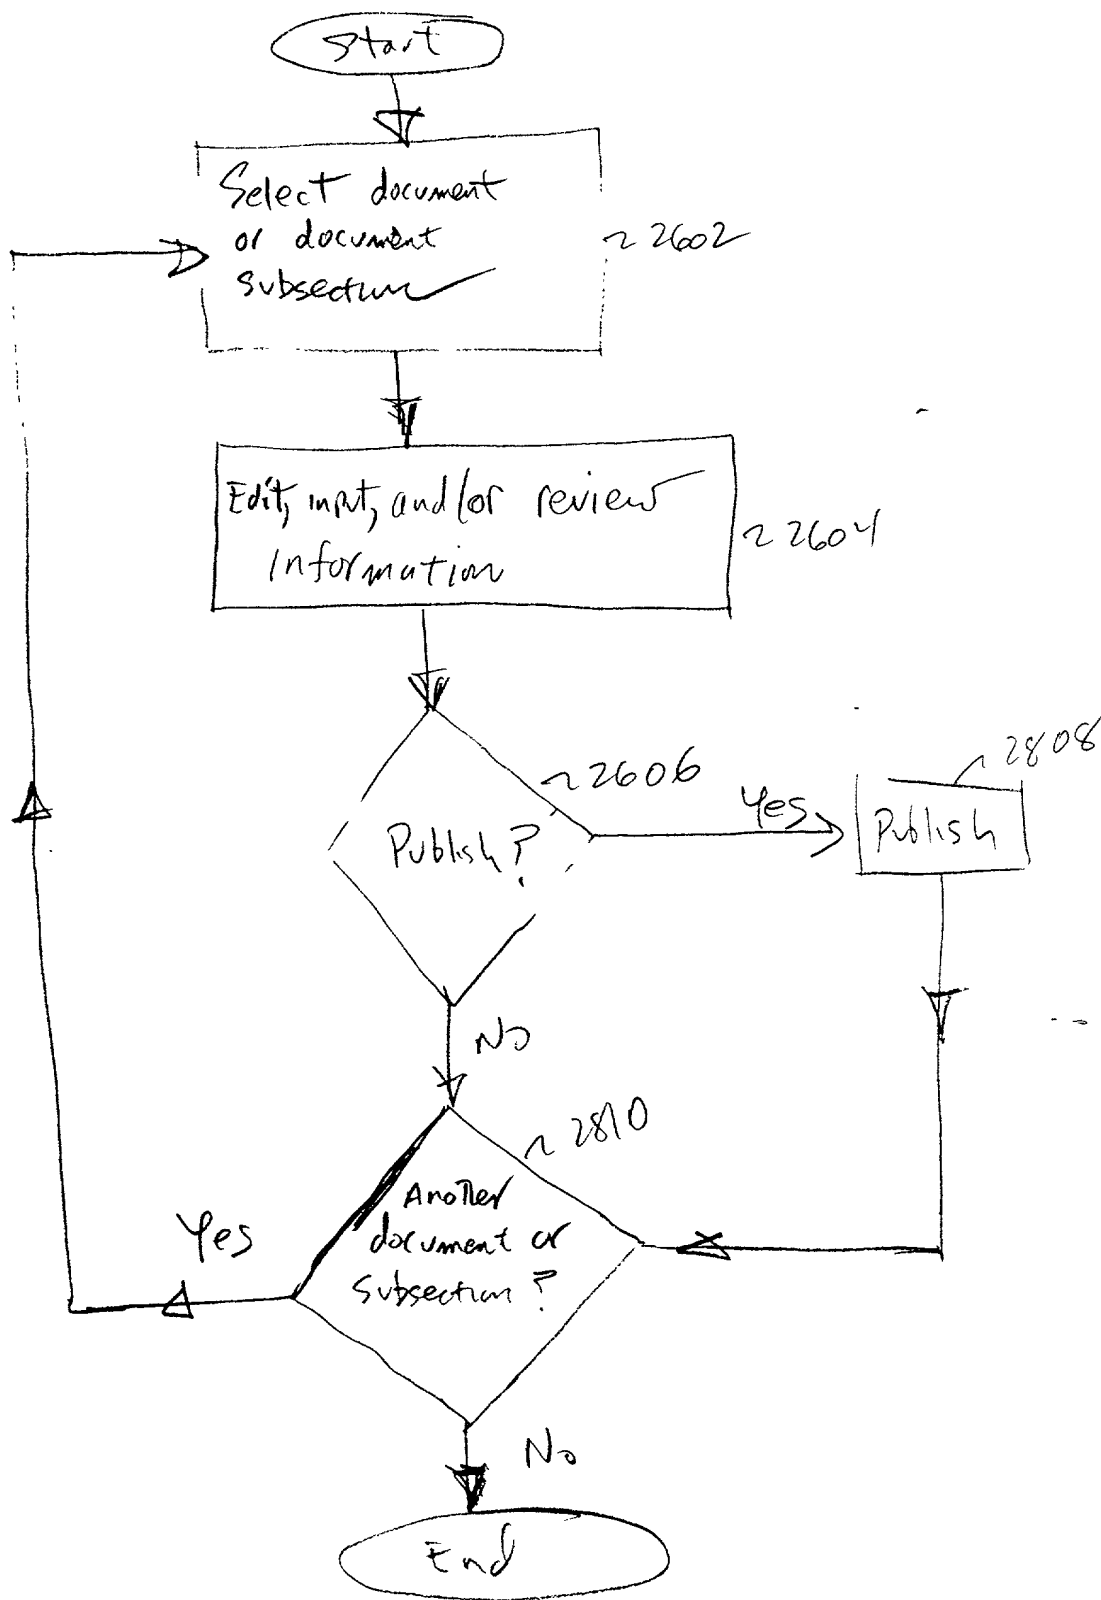 Start
Select document
or document
subsection
~ 2602
Edit, input, and/or review
information
~ 2604
~ 2606
Publish?
Yes
~ 2808
Publish
No
~ 2810
Another
document or
subsection?
Yes
No
End